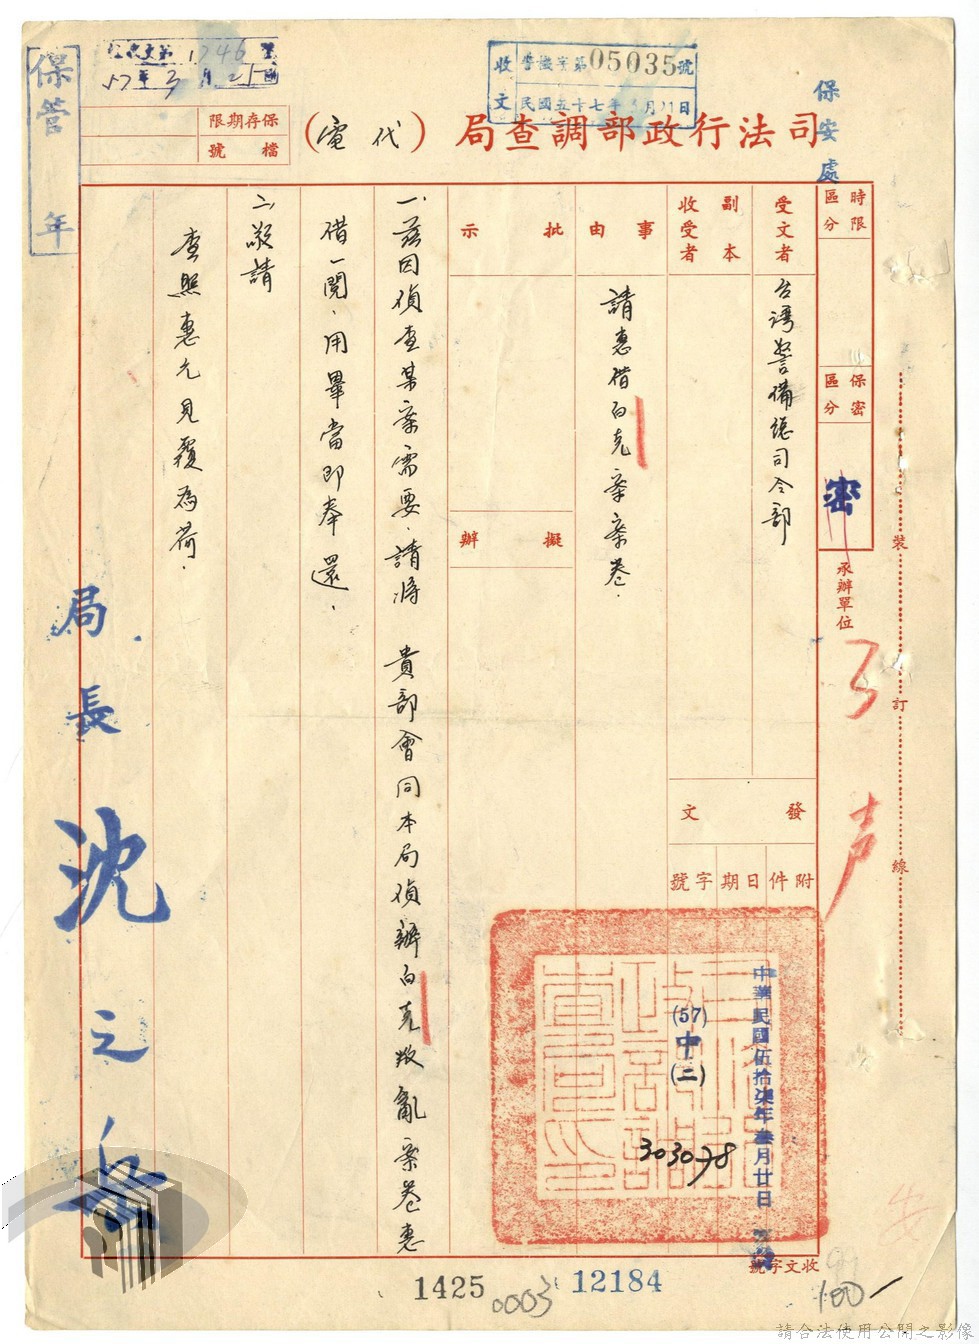 保安處
收文 警識字第05035號
民國五十七年3月21日
57年3月25日
保管 年
保存期限
檔號
司法行政部調查局(代電)
時限區分
保密區分
密
承辦單位
裝
訂
線
受文者
台灣警備總司令部
副本收受者
發文
附件
日期
字號
中華民國伍拾柒年叁月廿日
(57)中(二)
303078
事由
請惠借白克案案卷.
批示
擬辦
一、茲因偵查某案需要,請將 貴部會同本局偵辦白克叛亂案卷惠
借一閱,用畢當即奉還.
二、敬請
查照惠允見覆為荷.
局長 沈之岳
收文字號
1425
0003
12184
100
請合法使用公開之影像